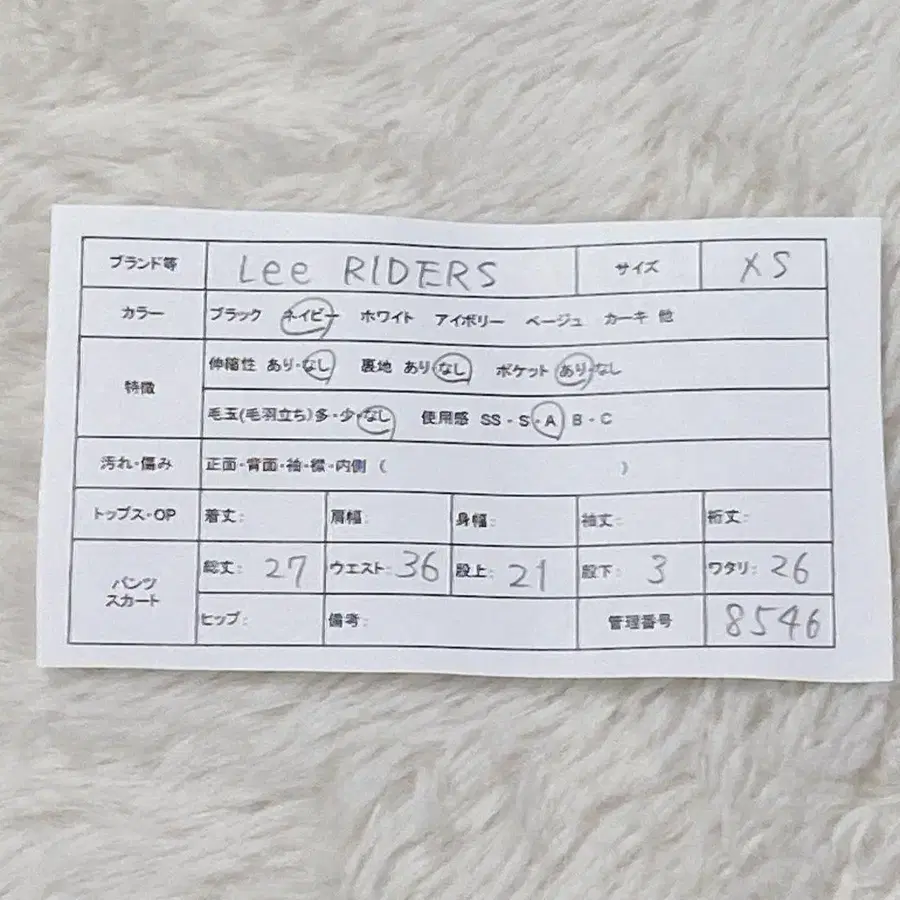 ブランド等 Lee RIDERS サイズ XS
カラー ブラック ネイビー ホワイト アイボリー ベージュ カーキ 他
特徴 伸縮性 あり・なし 裏地 あり・なし ポケット あり・なし
毛玉(毛羽立ち)多・少・なし 使用感 SS・S・A・B・C
汚れ・傷み 正面・背面・袖・襟・内側 ( )
トップス・OP 着丈: 肩幅: 身幅: 袖丈: 裄丈:
パンツ スカート 総丈: 27 ウエスト: 36 股上: 21 股下: 3 ワタリ: 26
ヒップ: 備考: 管理番号 8546